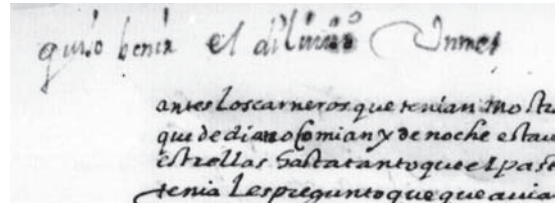 quiso benir el diluuio Un mes
antes los carneros que tenian mostra
que de dia no Comian y de noche estau
estrellas hasta tanto que el pas
tenia Les pregunto que que auia